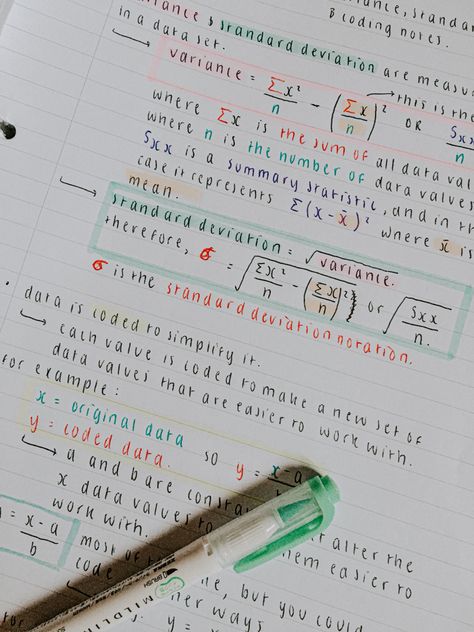 variance, standar
& coding notes.
variance & standard deviation are measu
in a data set.
variance = Σx²/n − (Σx/n)² OR Sxx/n
this is the
where Σx is the sum of all data val
where n is the number of data values
Sxx is a summary statistic, and in th
case it represents Σ(x-x̄)² where x̄ is
mean.
standard deviation = √variance.
therefore, σ = √(Σx²/n − (Σx/n)²) or √(Sxx/n).
σ is the standard deviation notation.
• data is coded to simplify it.
each value is coded to make a new set of
data values that are easier to work with.
for example:
x = original data
y = coded data. so y = x-a/b
a and b are consta
x data values to alter the
work with. them easier to
= x-a/b
most of
code
, but you could
her ways
for y =
BRUSH
MILDLIN